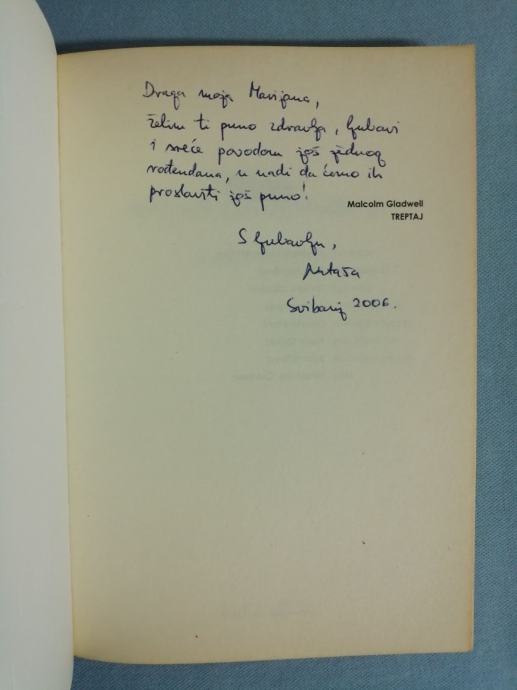 Draga moja Marijana,
želim ti puno zdravlja, ljubavi
i sreće povodom još jednog
rođendana, u nadi da ćemo ih
proslaviti još puno!
Malcolm Gladwell
TREPTAJ
S ljubavlju,
Nataša
Svibanj 2006.